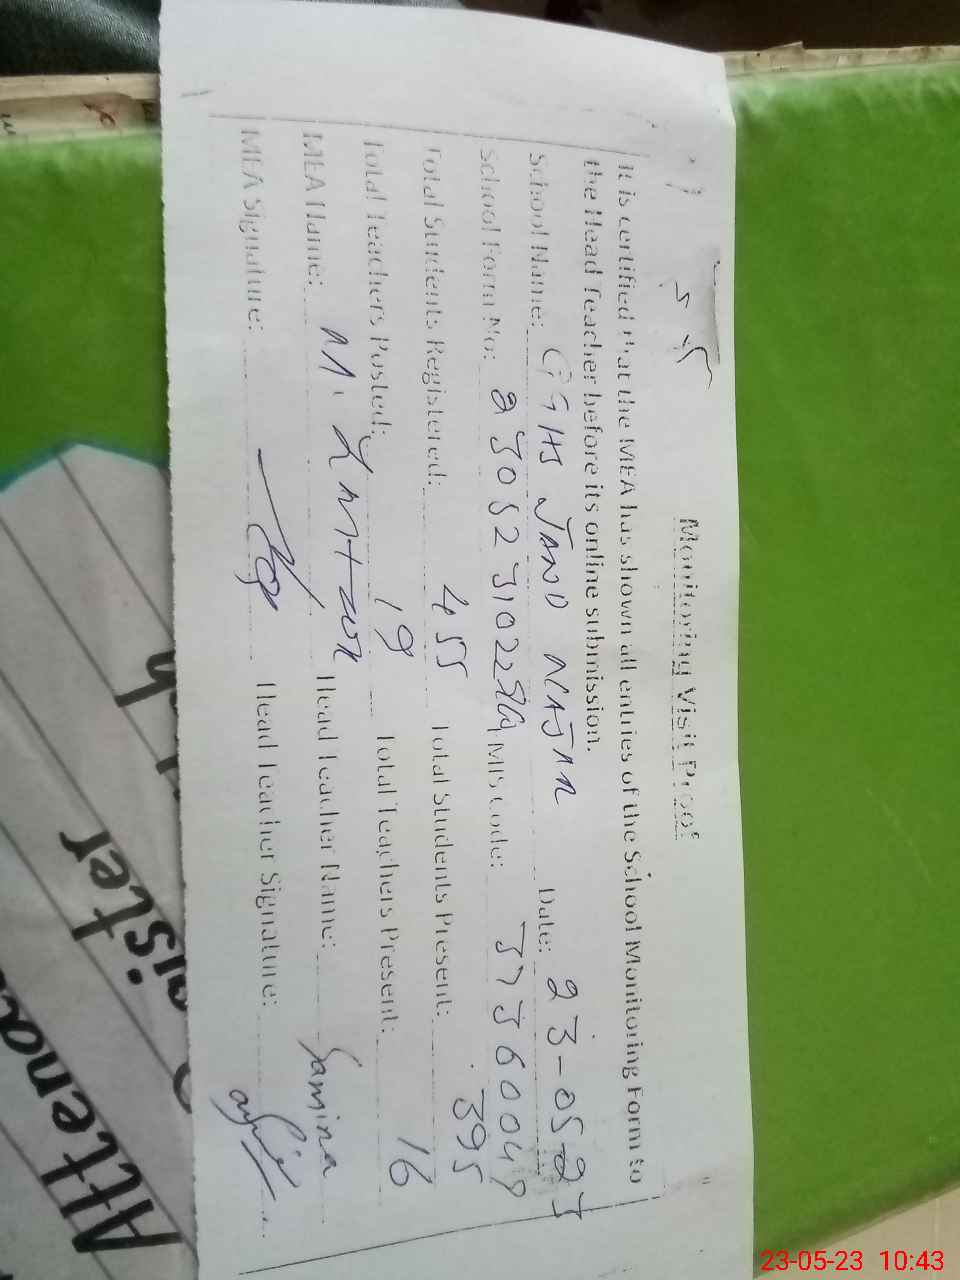 Monitoring Visit Proof
It is certified that the MEA has shown all entries of the School Monitoring Form to
the Head Teacher before its online submission.
School Name: GGHS JAND NAJAR Date: 23-05-23
School Form No: MIS Code: 37360048
Total Students Registered: 455 Total Students Present: 395
Total Teachers Posted: 19 Total Teachers Present: 16
MEA Name: M. Head Teacher Name: Samina
MEA Signature: Head Teacher Signature:
Attendance
Register
23-05-23 10:43